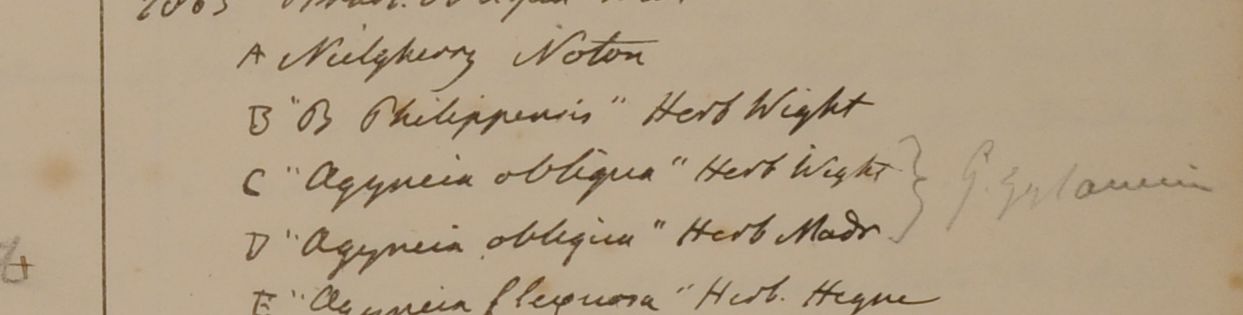 A Nielgherry Noton
B "B Philippensis" Herb Wight
C "Agyneia obliqua" Herb Wight
D "Agyneia obliqua" Herb Madr
G. zeylanicum
E "Agyneia flexuosa" Herb. Heyne